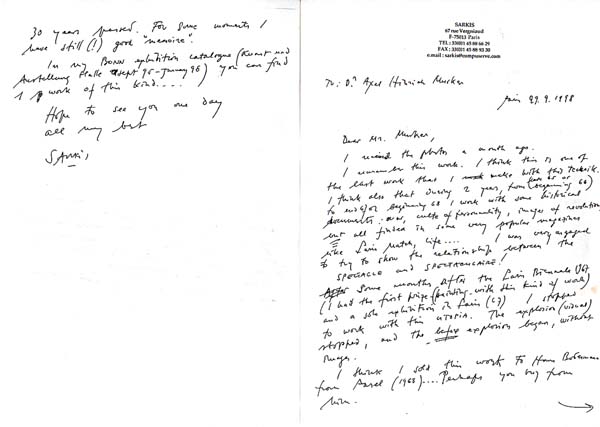 SARKIS
67 rue Vergniaud
F-75013 Paris
TEL : 33(0)1 45 88 66 29
FAX : 33(0)1 45 88 93 30
e.mail : sarkis@compuserve.com
To: Dr Axel Hinrich Murken
Paris 29.9.1998
Dear Mr. Murken,
I received the photos a month ago.
I remember this work. I think this is one of
the last work that I make with this technik.
I think also that during 2 years, from (beginning 66)
to end 67 or beginning 68 I work with some historical
documents: war, culte of personnality, images of revolution
but all finded in some very popular magazines
like Paris Match, Life.... I was very engaged
to try to show the relationship between the
SPECTACLE and SPECTACULAIRE!
Some months after the Paris Biennale (67)
(I had the first prize (painting) with this kind of work)
and a solo exhibition in Paris (67) I stopped
to work with this UTOPIA. The explosion (visual)
stopped, and the explosion began, without
images.
I think I sold this work to Hans
from (1968).... Perhaps you buy from
him.
→
30 years passed. For some moments I
have still (!) good "memoire".
In my BONN exhibition catalogue (Kunst und
Austellung Halle sept 95-January 96) you can find
1 work of this kind....
Hope to see you one day
all my best
SARKIS,